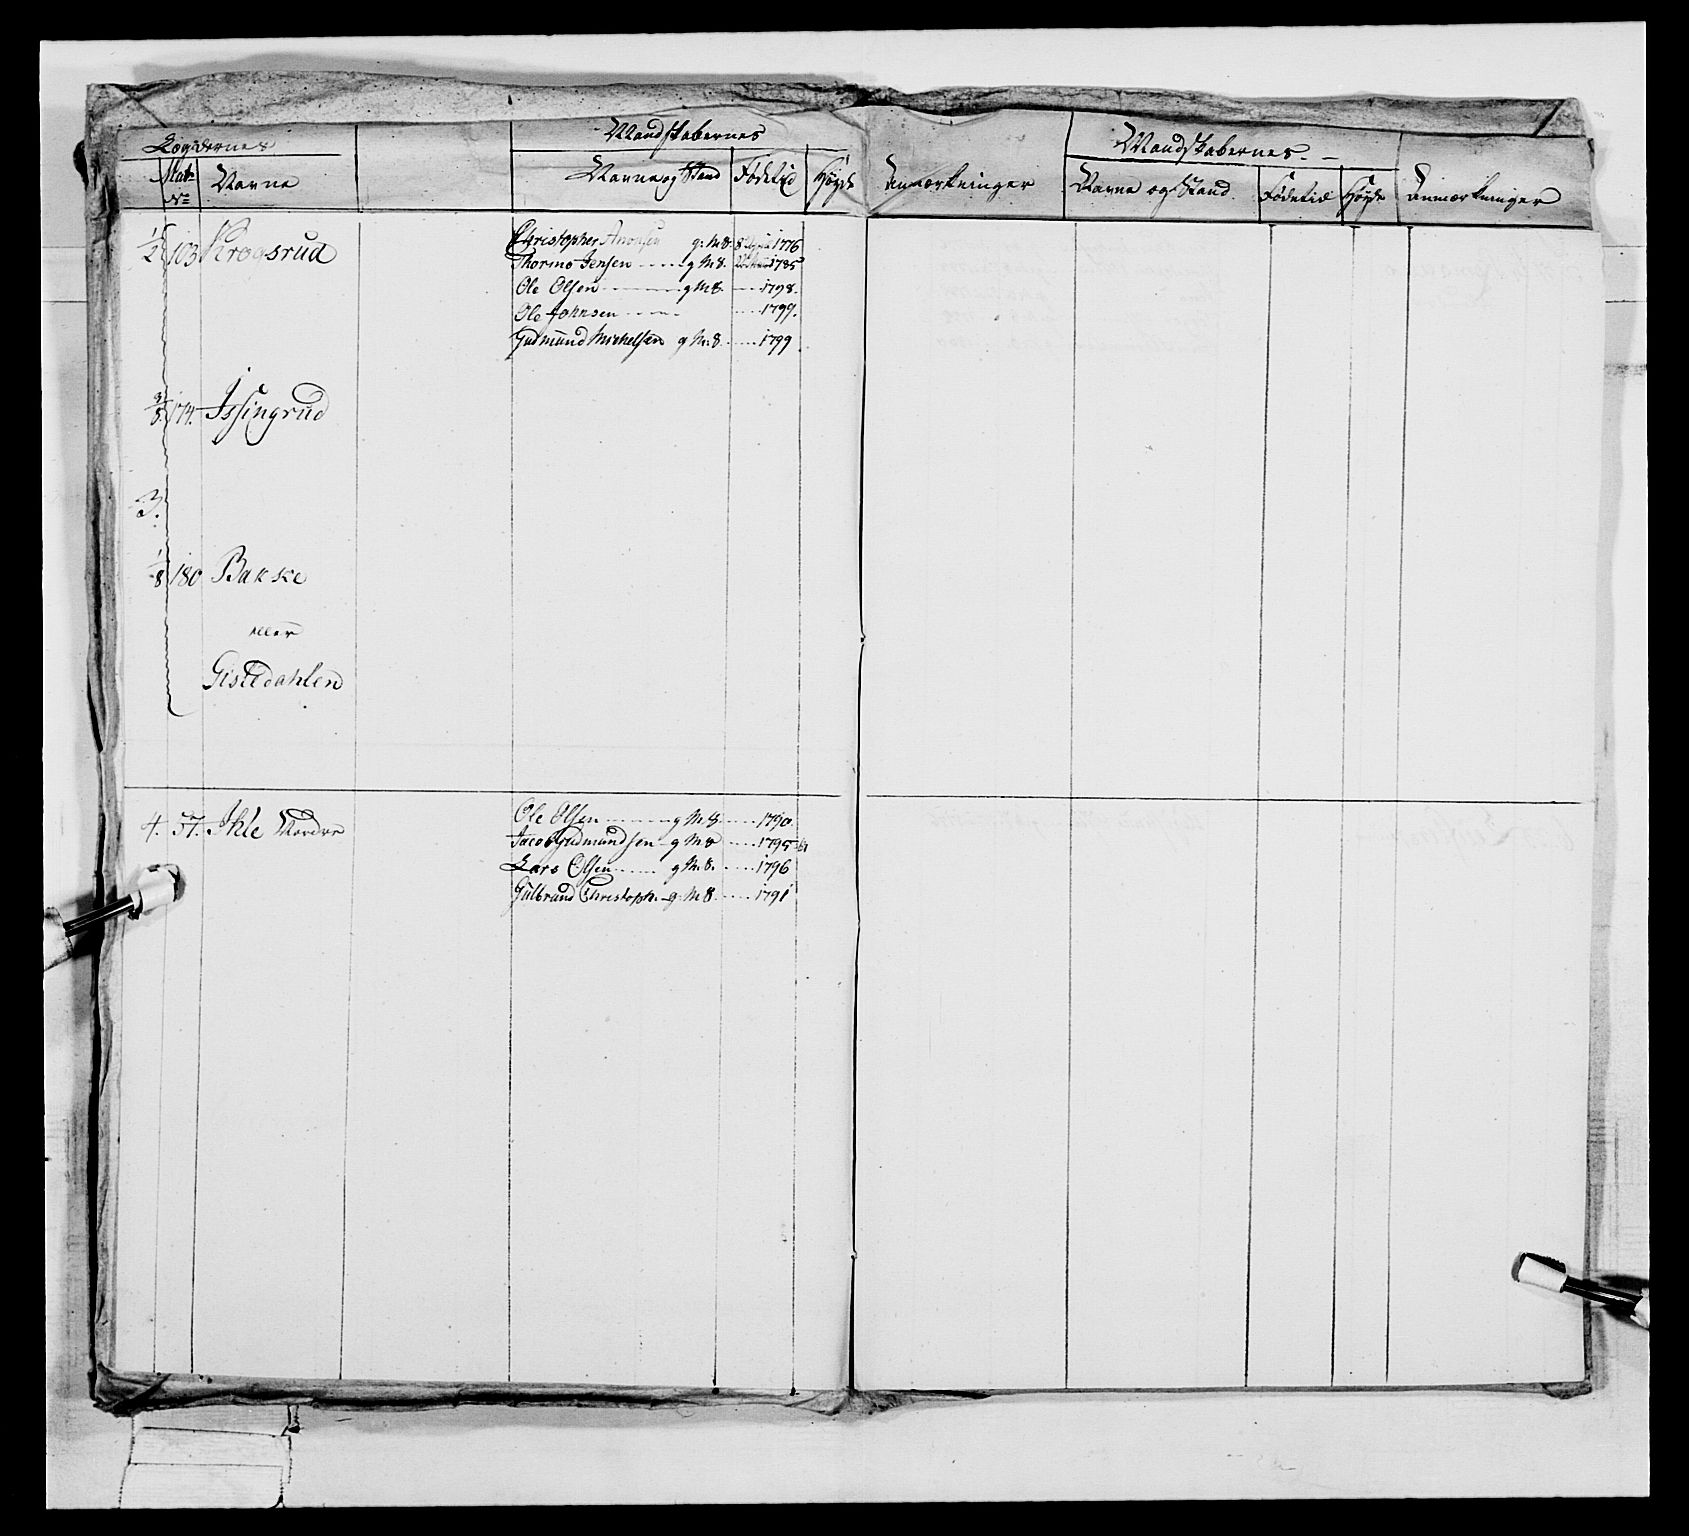 Lægdernes
Mandskabernes
Mandskabernes
Mat: No
Navne
Navne og Stand
Fødetid
Høyde
Anmærkninger
Navne og Stand
Fødetid
Høyde
Anmærkninger
1/2 103 Krogsrud
Christopher g: M8. 8 1776
Thormo Jensen g M8. 1785
Ole Olsen g M8. 1798.
Ole Johnsen 1799.
Gudmund Michelsen g M: 8. 1799
3/8 174. Issingrud
3.
1/8 180 Bakke
eller
Gisledahlen
4. 57. Ihle Nordre
Ole Olsen g M8. 1790.
Jacob Gudmundsen g M8 1795
Lars Olsen g M. 8. 1796
Gulbrand Christoph. g: M8. 1791